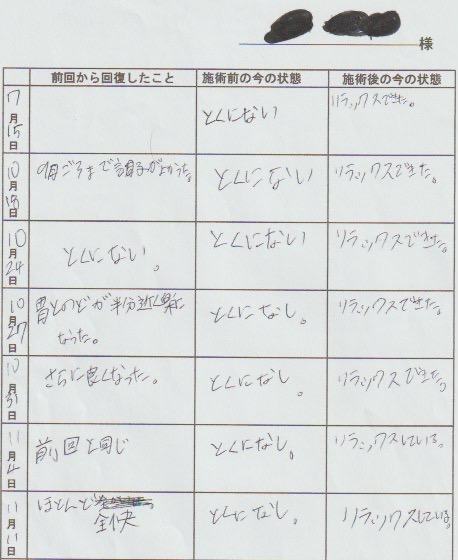 様
前回から回復したこと 施術前の今の状態 施術後の今の状態
7月15日 とくにない リラックスできた。
10月18日 9月ごろまで調子がよかった。 とくにない リラックスできた。
10月24日 とくにない。 とくにない リラックスできた。
10月27日 胃とのどが半分近く楽に とくになし。 リラックスできた。
なった。
10月31日 さらに良くなった。 とくになし。 リラックスできた。
11月4日 前回と同じ とくになし。 リラックスしている。
11月11日 ほとんど とくになし。 リラックスしている。
全快